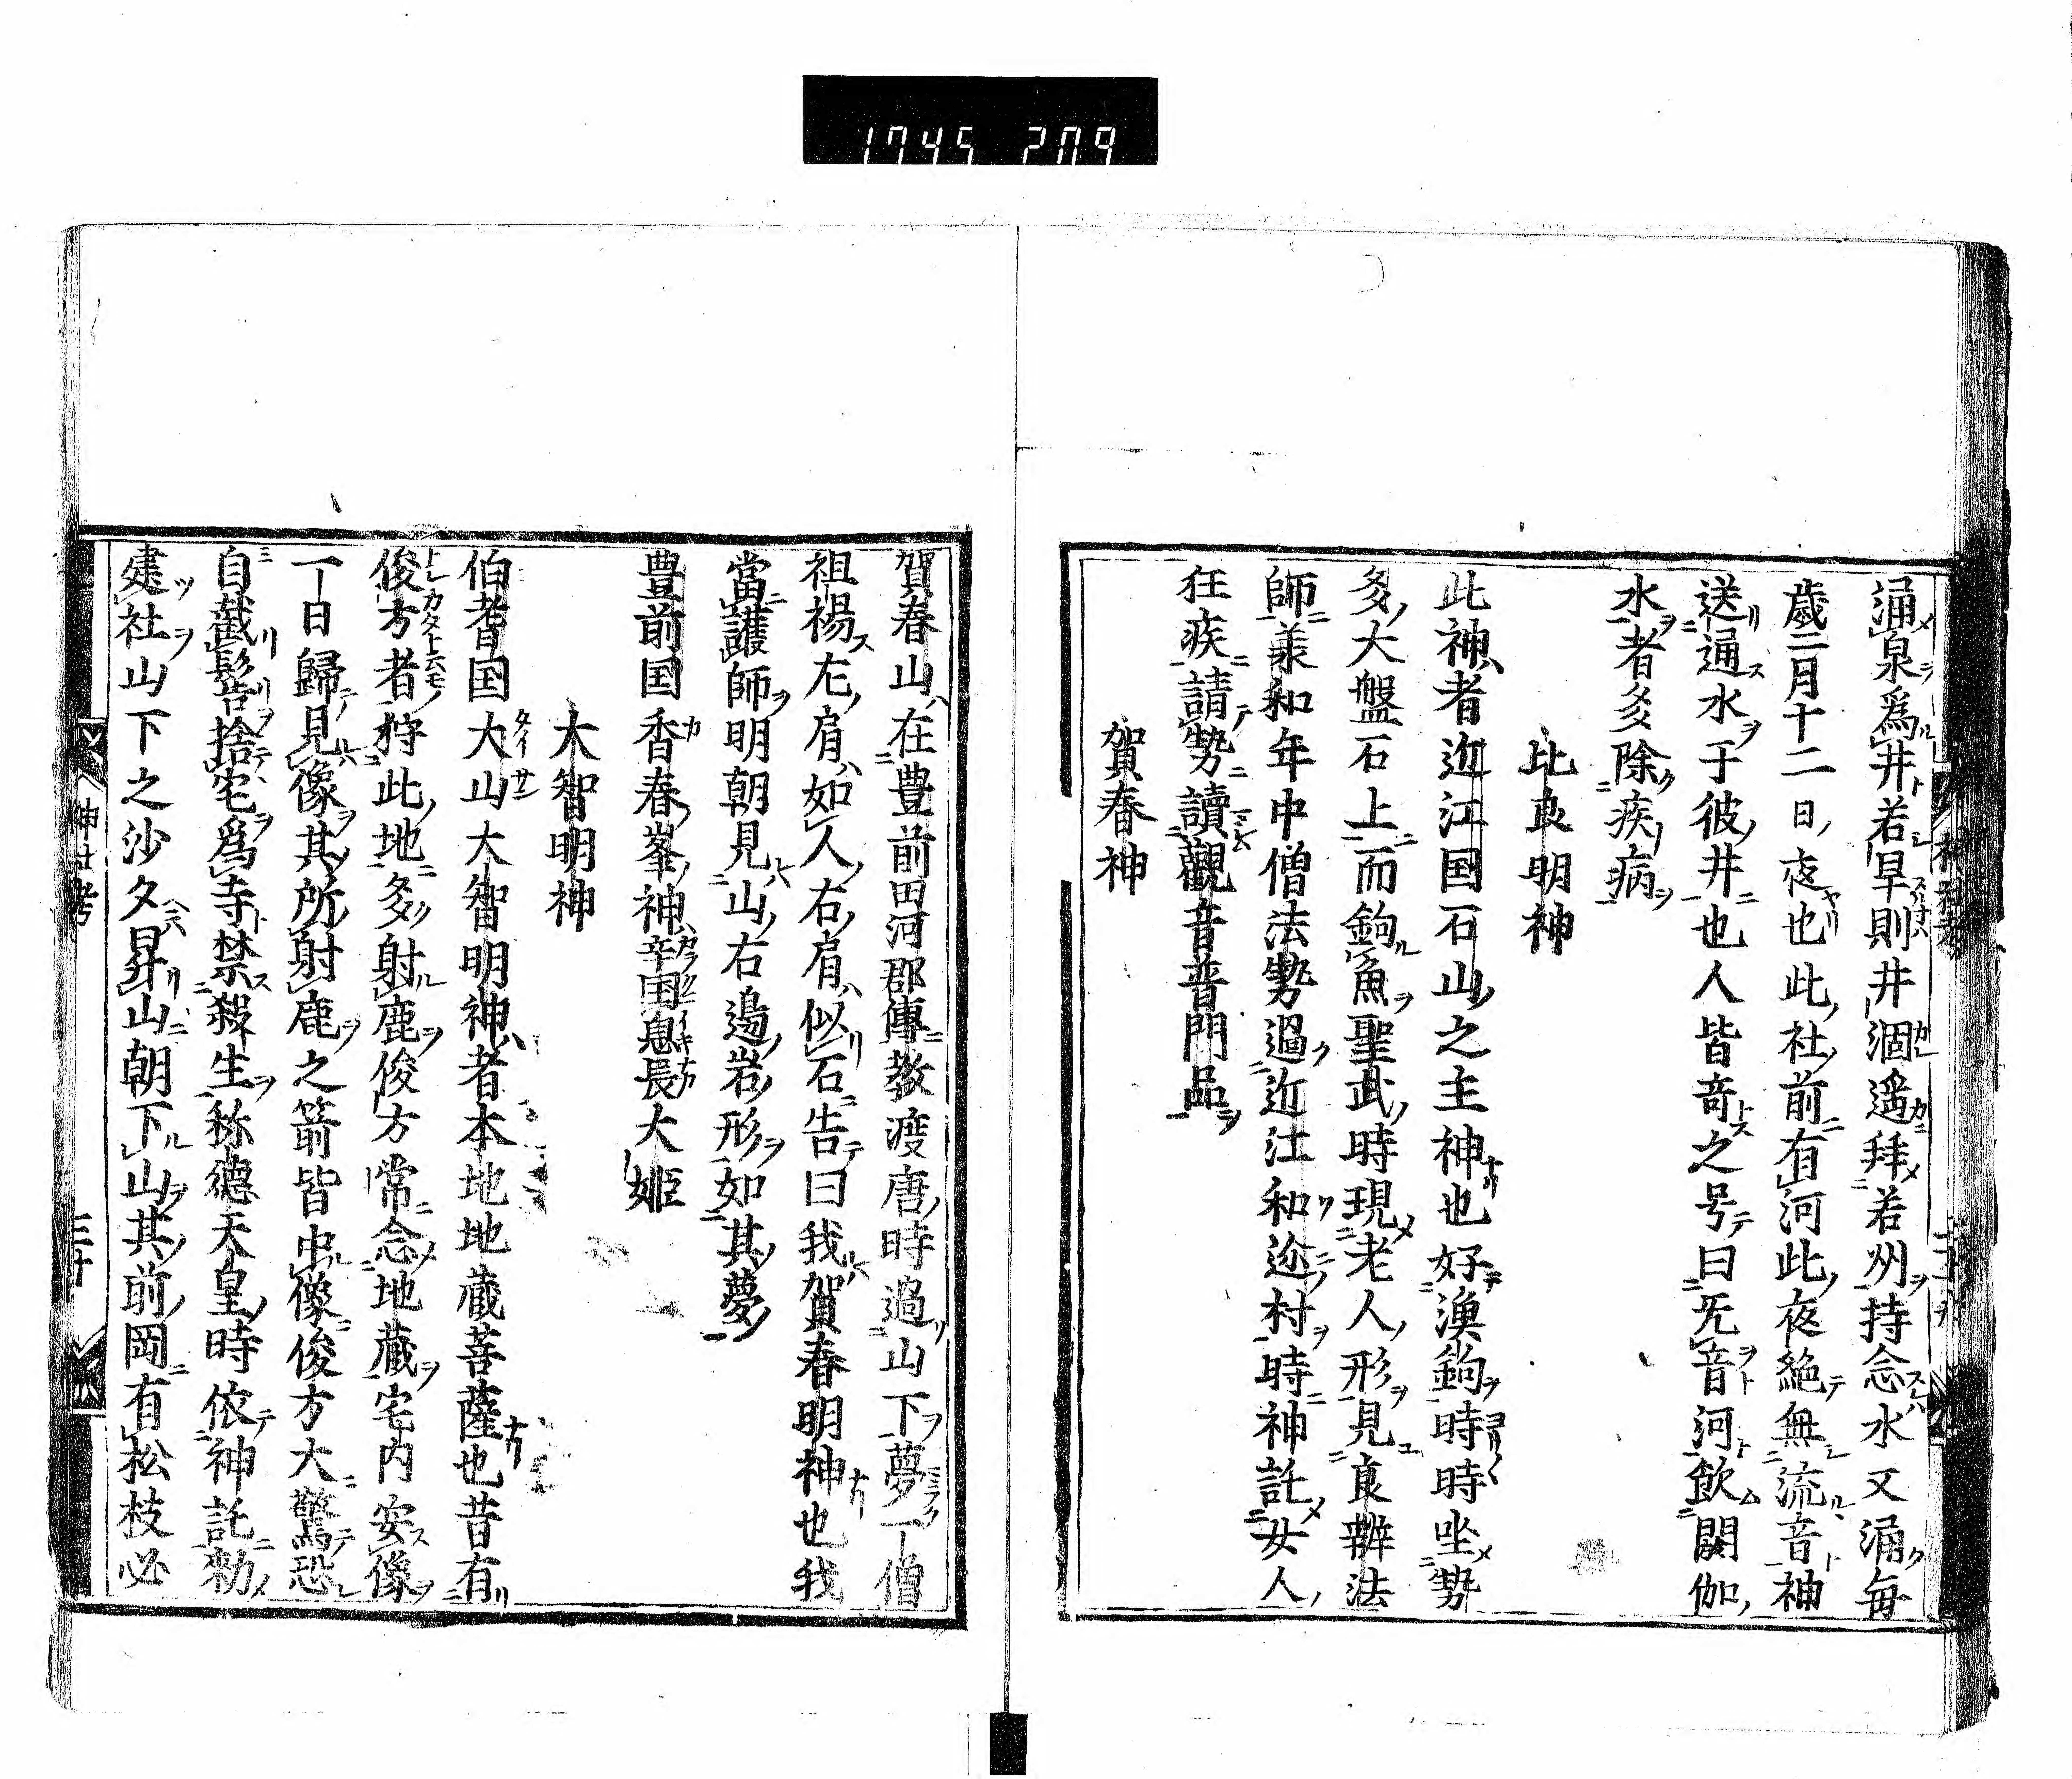 1745 209
涌泉爲井若旱則井涸遥拜若州持念水又涌毎
歳二月十二日夜也此社前有河此夜絶無流音神
送通水于彼井也人皆奇之号曰无音河飲閼伽
水者多除疾病
比良明神
此神者近江国石山之主神也好漁鉤時時坐勢
多大盤石上而鉤魚聖武時現老人形見良辨法
師承和年中僧法勢過近江和迩村時神託女人
任疾請勢讀觀音普門品
賀春神
賀春山在豊前田河郡傳教渡唐時過山下夢一僧
祖裼左肩如人右肩似石告曰我賀春明神也我
當護師明朝見山右邉岩形如其夢
豊前国香春峯神辛国息長大姫
大智明神
伯耆国大山大智明神者本地地蔵菩薩也昔有
俊方者狩此地多射鹿俊方常念地蔵宅内安像
一日歸見像其所射鹿之箭皆中像俊方大驚恐
自截髻捨宅爲寺禁殺生称徳天皇時依神託勅
建社山下之沙夕昇山朝下山其前岡有松枝必
神社考
三十